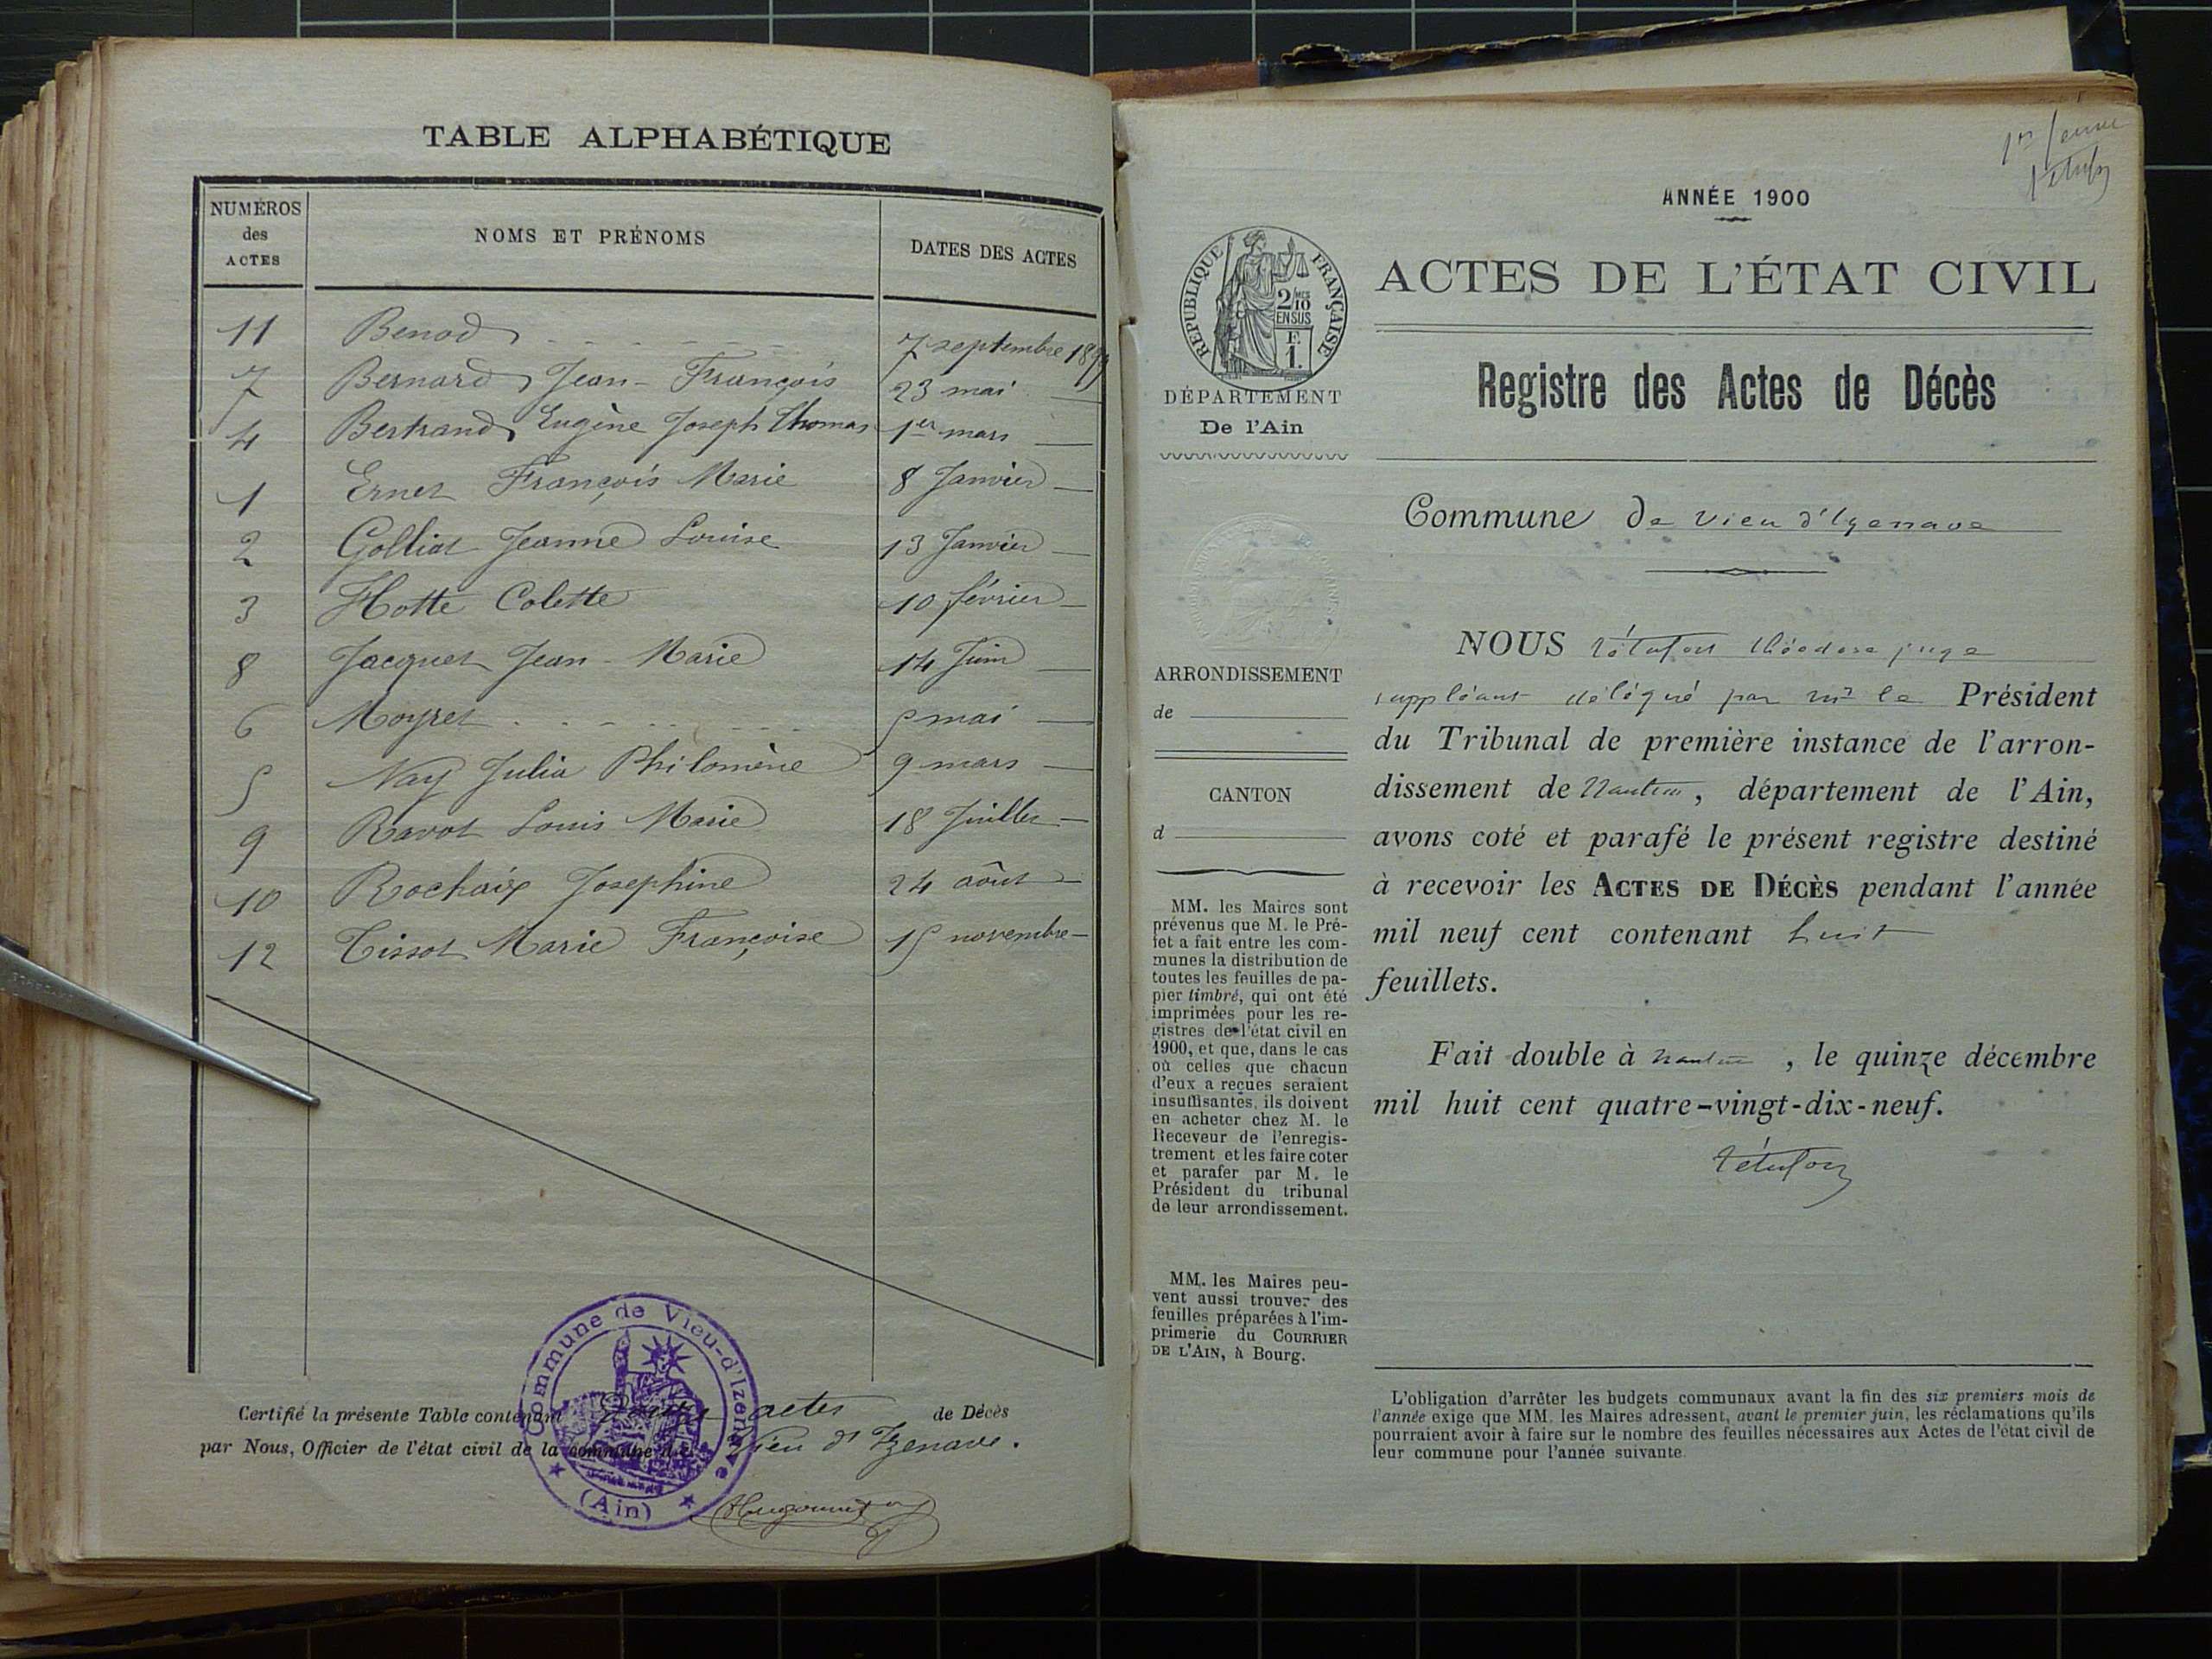 TABLE ALPHABÉTIQUE
NUMÉROS des ACTES
NOMS ET PRÉNOMS
DATES DES ACTES
11 Benod 7 septembre 1899
7 Bernard Jean-François 23 mai
4 Bertrand Eugène Joseph Thomas 1er mars
1 Ernet François Marie 8 Janvier
2 Golliat Jeanne Louise 13 Janvier
3 Hotte Colette 10 février
8 Jacquet Jean-Marie 14 Juin
6 Moyret 5 mai
5 Nay Julia Philomène 9 mars
9 Ravot Louis Marie 18 Juillet
10 Rochaix Josephine 24 aôut
12 Tissot Marie Françoise 15 novembre
Certifié la présente Table contenant Douze actes de Décès
par Nous, Officier de l'état civil de la commune de Vieu d'Izenave.
Commune de Vieu-d'Izenave
(Ain)
1er
ANNÉE 1900
RÉPUBLIQUE FRANÇAISE
2/10
EN SUS
F.
1.
DÉPARTEMENT
De l'Ain
ACTES DE L'ÉTAT CIVIL
Registre des Actes de Décès
Commune de Vieu d'Izenave
ARRONDISSEMENT
de
CANTON
d
MM. les Maires sont
prévenus que M. le Pré-
fet a fait entre les com-
munes la distribution de
toutes les feuilles de pa-
pier timbré, qui ont été
imprimées pour les re-
gistres de l'état civil en
1900, et que, dans le cas
où celles que chacun
d'eux a reçues seraient
insuffisantes, ils doivent
en acheter chez M. le
Receveur de l'enregis-
trement et les faire coter
et parafer par M. le
Président du tribunal
de leur arrondissement.
MM. les Maires peu-
vent aussi trouver des
feuilles préparées à l'im-
primerie du COURRIER
DE L'AIN, à Bourg.
NOUS Théodore juge
suppléant délégué par mr le Président
du Tribunal de première instance de l'arron-
dissement de Nantua, département de l'Ain,
avons coté et parafé le présent registre destiné
à recevoir les ACTES DE DÉCÈS pendant l'année
mil neuf cent contenant huit
feuillets.
Fait double à Nantua, le quinze décembre
mil huit cent quatre-vingt-dix-neuf.
L'obligation d'arrêter les budgets communaux avant la fin des six premiers mois de
l'année exige que MM. les Maires adressent, avant le premier juin, les réclamations qu'ils
pourraient avoir à faire sur le nombre des feuilles nécessaires aux Actes de l'état civil de
leur commune pour l'année suivante.